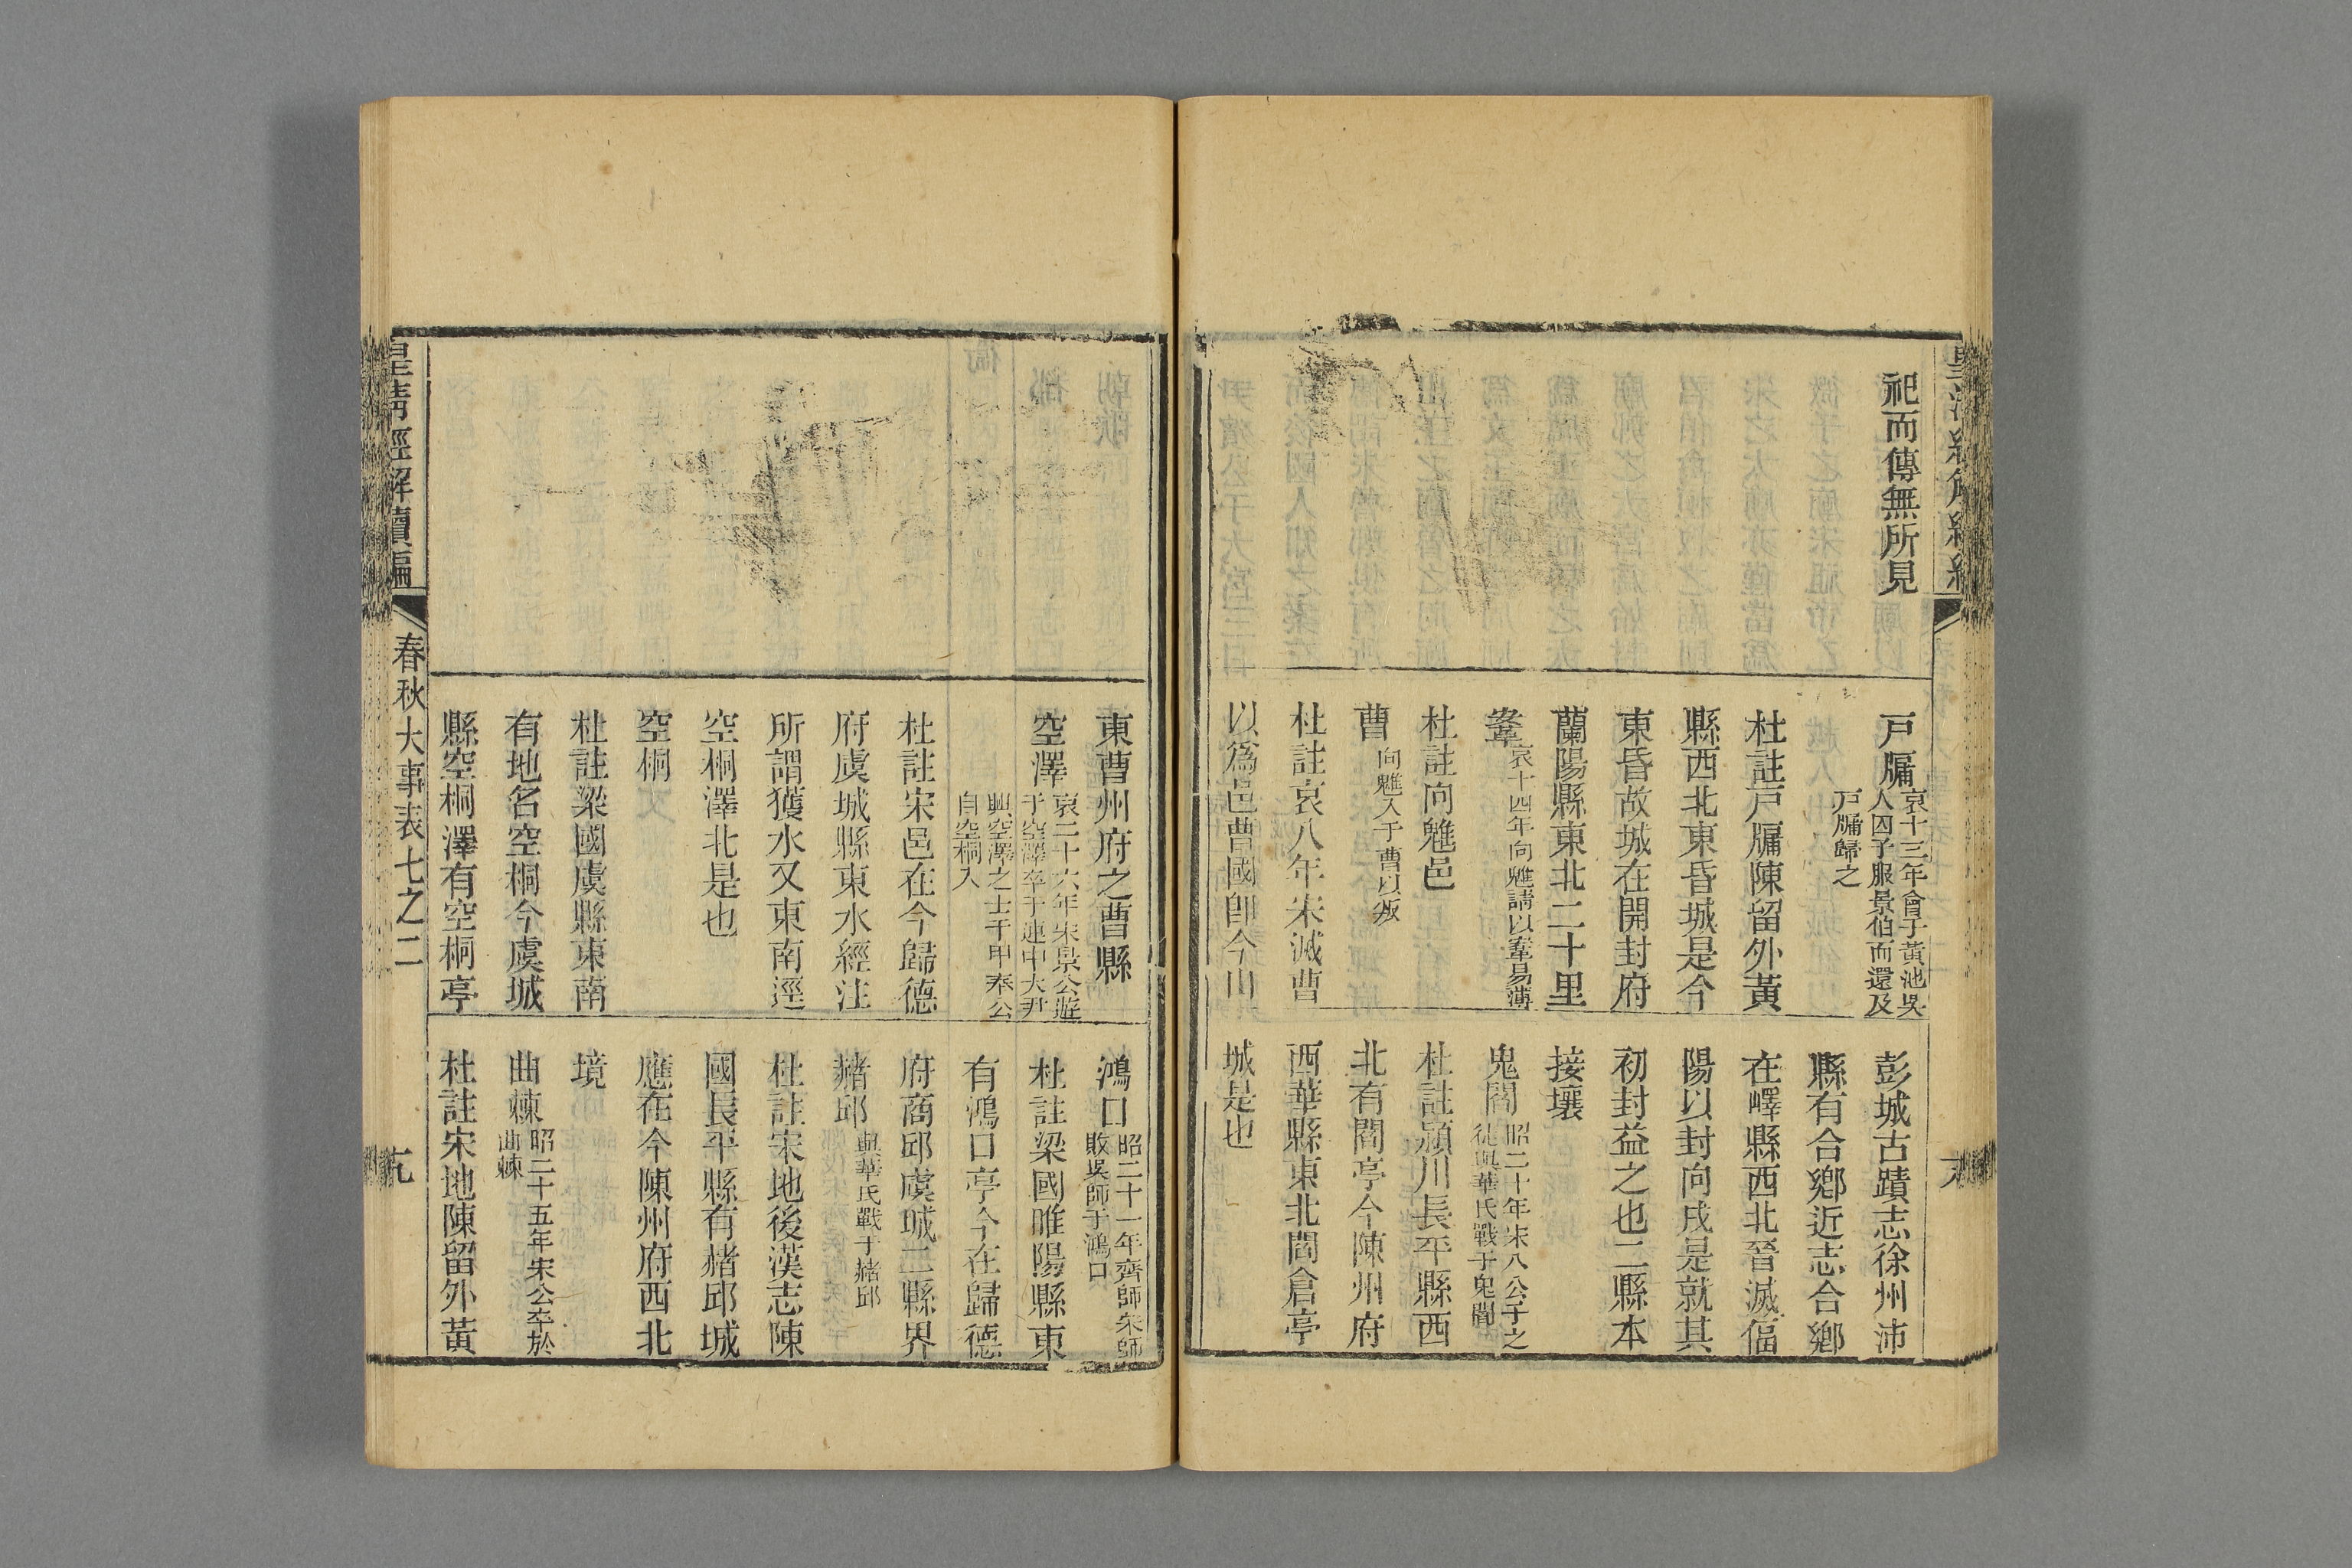 祀而傳無所見
戸牖哀十三年會于黃池吳
人囚子服景伯而還及
戸牖歸之
杜註戸牖陳留外黃
縣西北東昏城是今
東昏故城在開封府
蘭陽縣東北二十里
鞌哀十四年向魋請以鞌易薄
杜註向魋邑
曹向魋入于曹以叛
杜註哀八年宋滅曹
以爲邑曹國卽今山
彭城古蹟志徐州沛
縣有合鄉近志合鄉
在嶧縣西北晉滅偪
陽以封向戌是就其
初封益之也二縣本
接壤
鬼閻昭二十年宋八公子之
徒與華氏戰于鬼閻
杜註潁川長平縣西
北有閻亭今陳州府
西華縣東北閻倉亭
城是也
東曹州府之曹縣
空澤哀二十六年宋景公遊
于空澤卒于連中大尹
興空澤之士千甲奉公
自空桐入
杜註宋邑在今歸德
府虞城縣東水經注
所謂獲水又東南逕
空桐澤北是也
空桐
杜註梁國虞縣東南
有地名空桐今虞城
縣空桐澤有空桐亭
鴻口昭二十一年齊師宋師
敗吳師于鴻口
杜註梁國睢陽縣東
有鴻口亭今在歸德
府商邱虞城二縣界
赭邱與華氏戰于赭邱
杜註宋地後漢志陳
國長平縣有赭邱城
應在今陳州府西北
境
曲棘昭二十五年宋公卒於
曲棘
杜註宋地陳留外黃
皇清經解續編
春秋大事表七之二